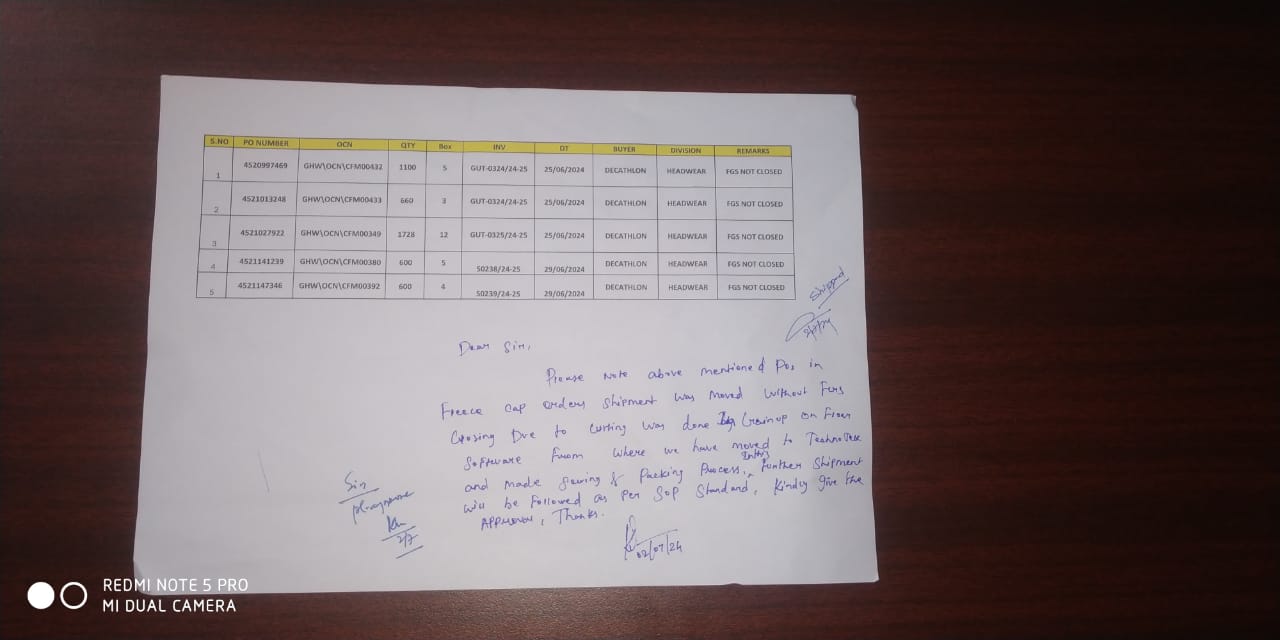 S.NO PO NUMBER OCN QTY Box INV DT BUYER DIVISION REMARKS
1 4520997469 GHW\OCN\CFM00432 1100 5 GUT-0324/24-25 25/06/2024 DECATHLON HEADWEAR FGS NOT CLOSED
2 4521013248 GHW\OCN\CFM00433 660 3 GUT-0324/24-25 25/06/2024 DECATHLON HEADWEAR FGS NOT CLOSED
3 4521027922 GHW\OCN\CFM00349 1728 12 GUT-0325/24-25 25/06/2024 DECATHLON HEADWEAR FGS NOT CLOSED
4 4521141239 GHW\OCN\CFM00380 600 5 50238/24-25 29/06/2024 DECATHLON HEADWEAR FGS NOT CLOSED
5 4521147346 GHW\OCN\CFM00392 600 4 50239/24-25 29/06/2024 DECATHLON HEADWEAR FGS NOT CLOSED
Shipped
2/7/24
Dear Sir,
Please Note above mentioned Pos in
cap orders shipment was moved without FGS
Closing Due to cutting was done on
Software From where we have moved to
and made Sewing & Packing Process, Further Shipment
will be Followed as Per SOP Standard, Kindly give the
Approval, Thanks.
Sir
2/7
02/07/24
REDMI NOTE 5 PRO
MI DUAL CAMERA